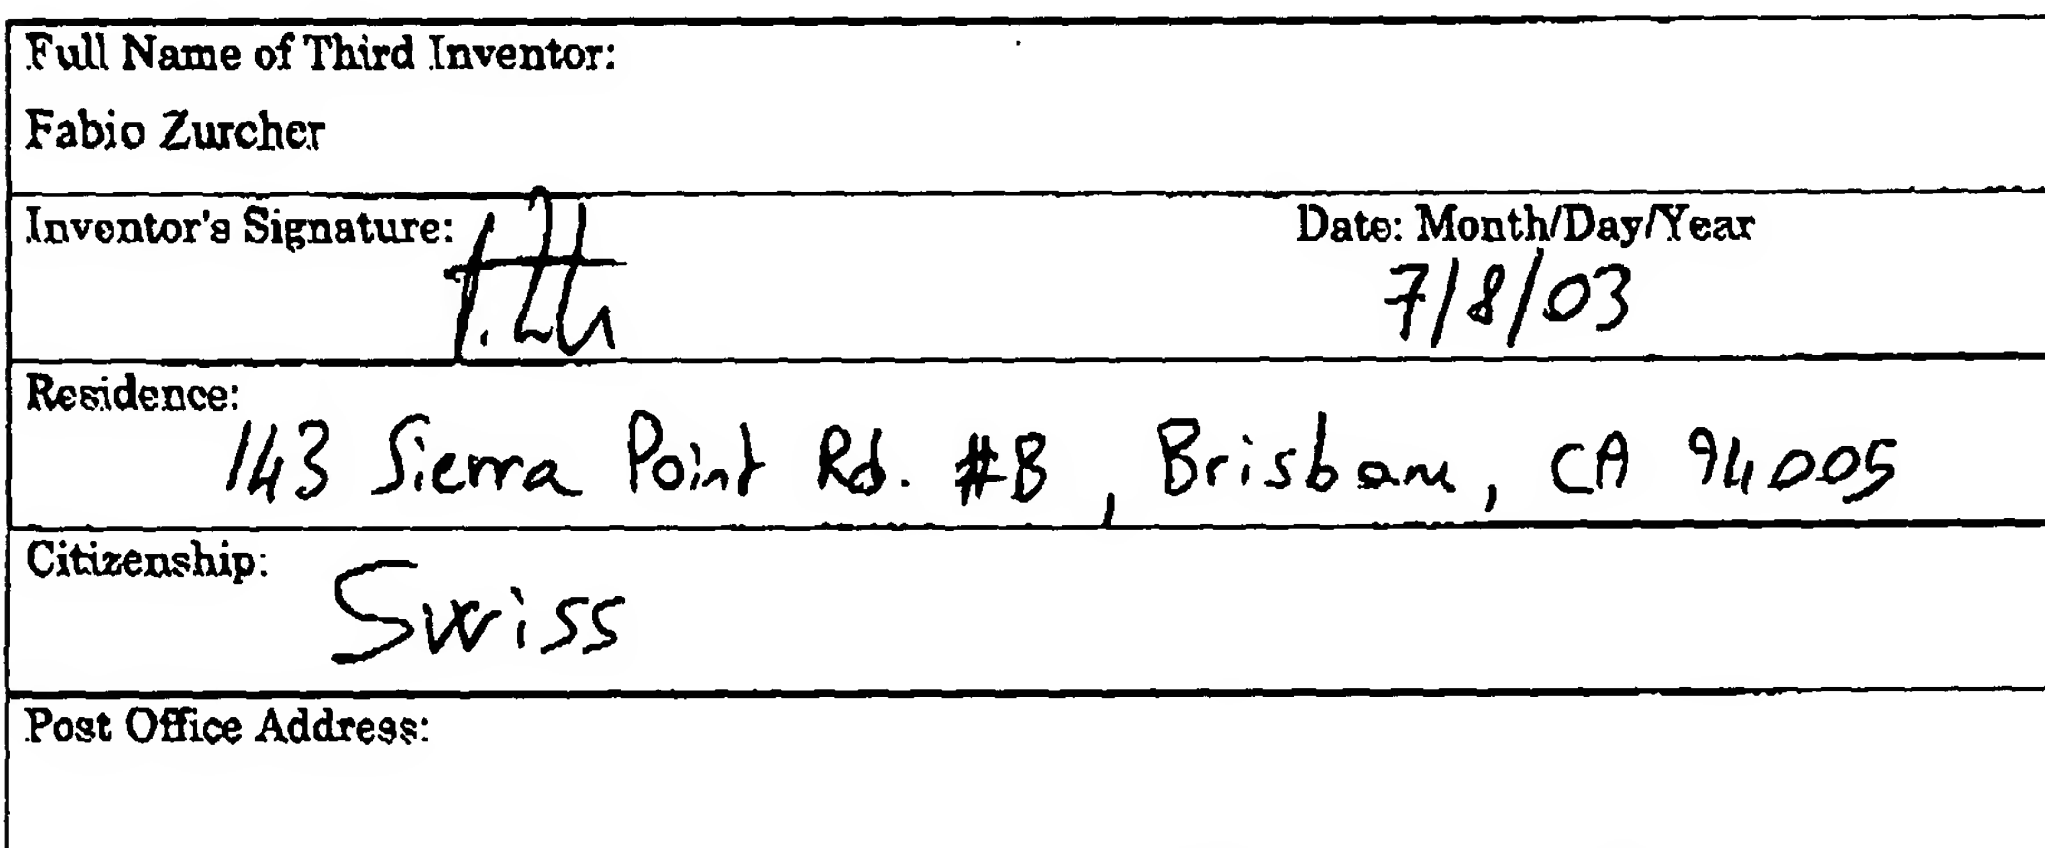 Full Name of Third Inventor:
Fabio Zurcher
Inventor's Signature:
Date: Month/Day/Year
7/8/03
Residence:
143 Sierra Point Rd. #B, Brisbane, CA 94005
Citizenship:
Swiss
Post Office Address: